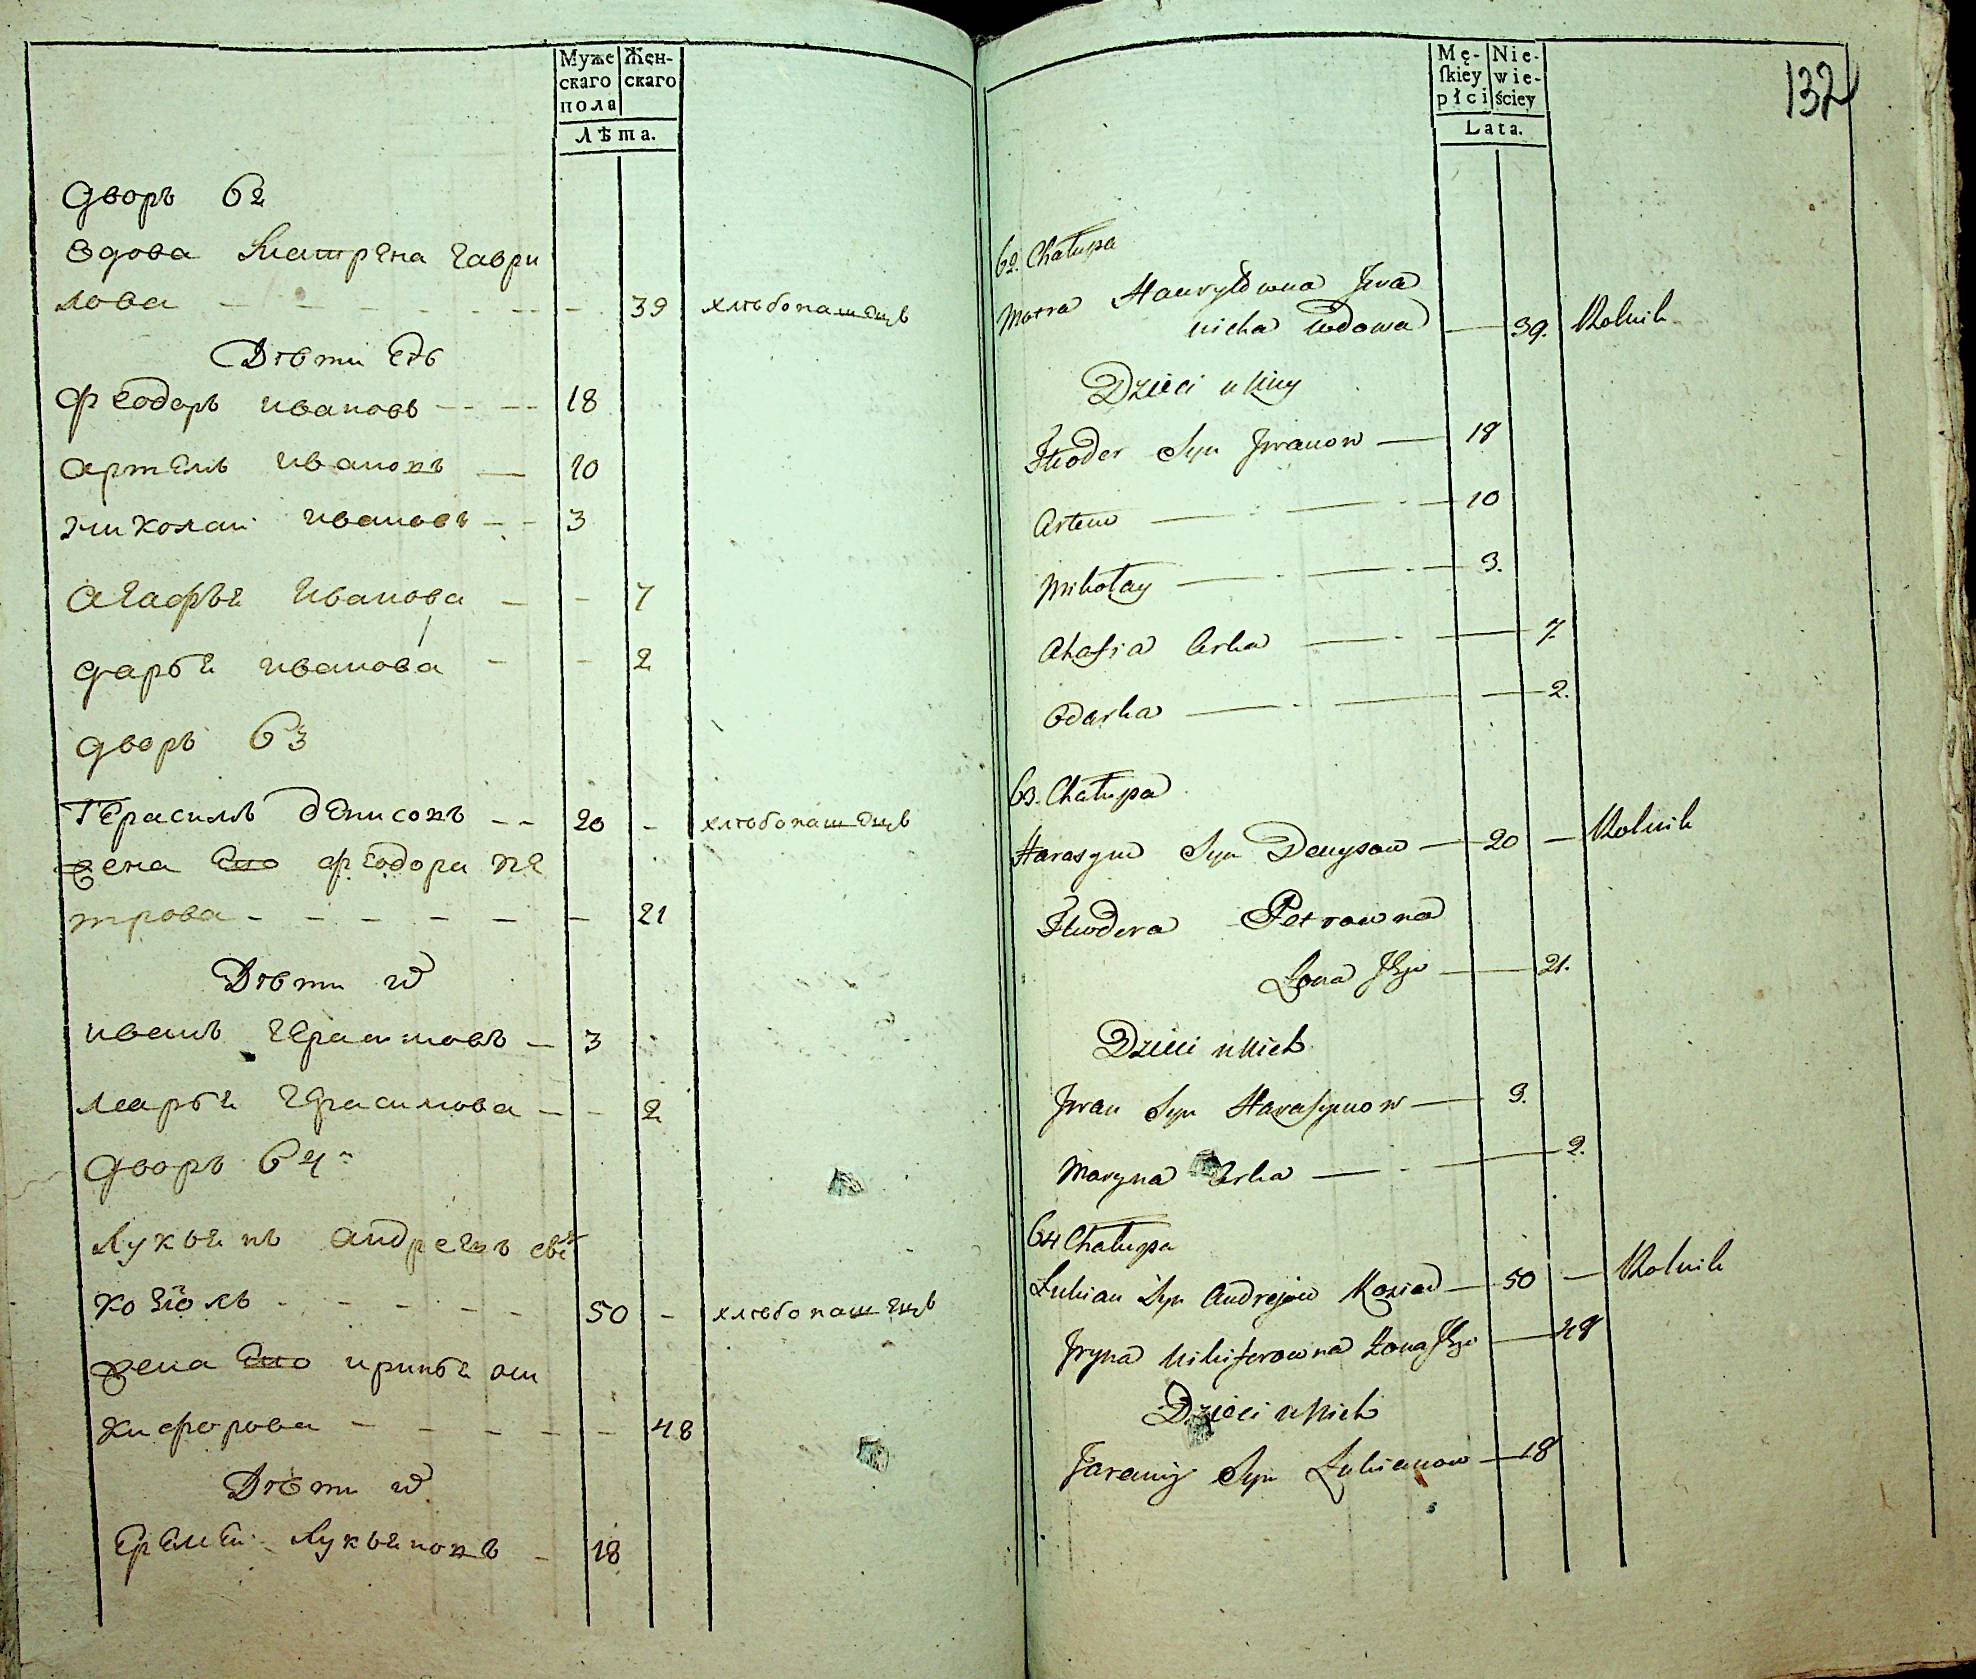 Муже
скаго
пола
Жен-
скаго
Лѣта.
Дворъ 62
Вдова Матрена Гаври
лова - - - - - - 39 хлѣбопашецъ
Дѣти Еѣ
Феодоръ Ивановъ - - - - 18
Артемъ Ивановъ — 10
Николай Ивановъ - - 3
Агафья Иванова - - 7
Дарья Иванова - - 2
Дворъ 63
Герасимъ Денисовъ - - 20 - хлѣбопашецъ
Жена Его Феодора Пе
трова - - - - - - 21
Дѣти их
Иванъ Герасимовъ - 3
Марья Герасимова - - 2
Дворъ 64
Лукьянъ Андреевъ
Козіолъ - - - - - 50 - хлѣбопашецъ
Жена Его Иринья Ни
кифорова - - - - - 48
Дѣти их
Еремей Лукьяновъ - 18
132
Mę-
ſkiey
płci
Nie-
wie-
ściey
Lata.
62. Chałupa
Motra Hauryłowna Iwa
nicha Wdowa — 39. Rolnik
Dzieci u Niey
Fteoder Syn Iwanow — 18
Artem — 10
Mikołay — 3.
Ahafia Corka — 7
Odarka — 2.
63. Chałupa
Harasym Syn Denysow — 20 — Rolnik
Fteodora Petrowna
Żona Jego — 21.
Dzieci u Nich
Iwan Syn Harasymow — 3.
Maryna Corka — 2.
64 Chałupa
Łukian Syn Andrejow Kozioł — 50 — Rolnik
Iryna Nikiforowna Żona Jego — 48
Dzieci u Nich
Jaremij Syn Łukianow — 18